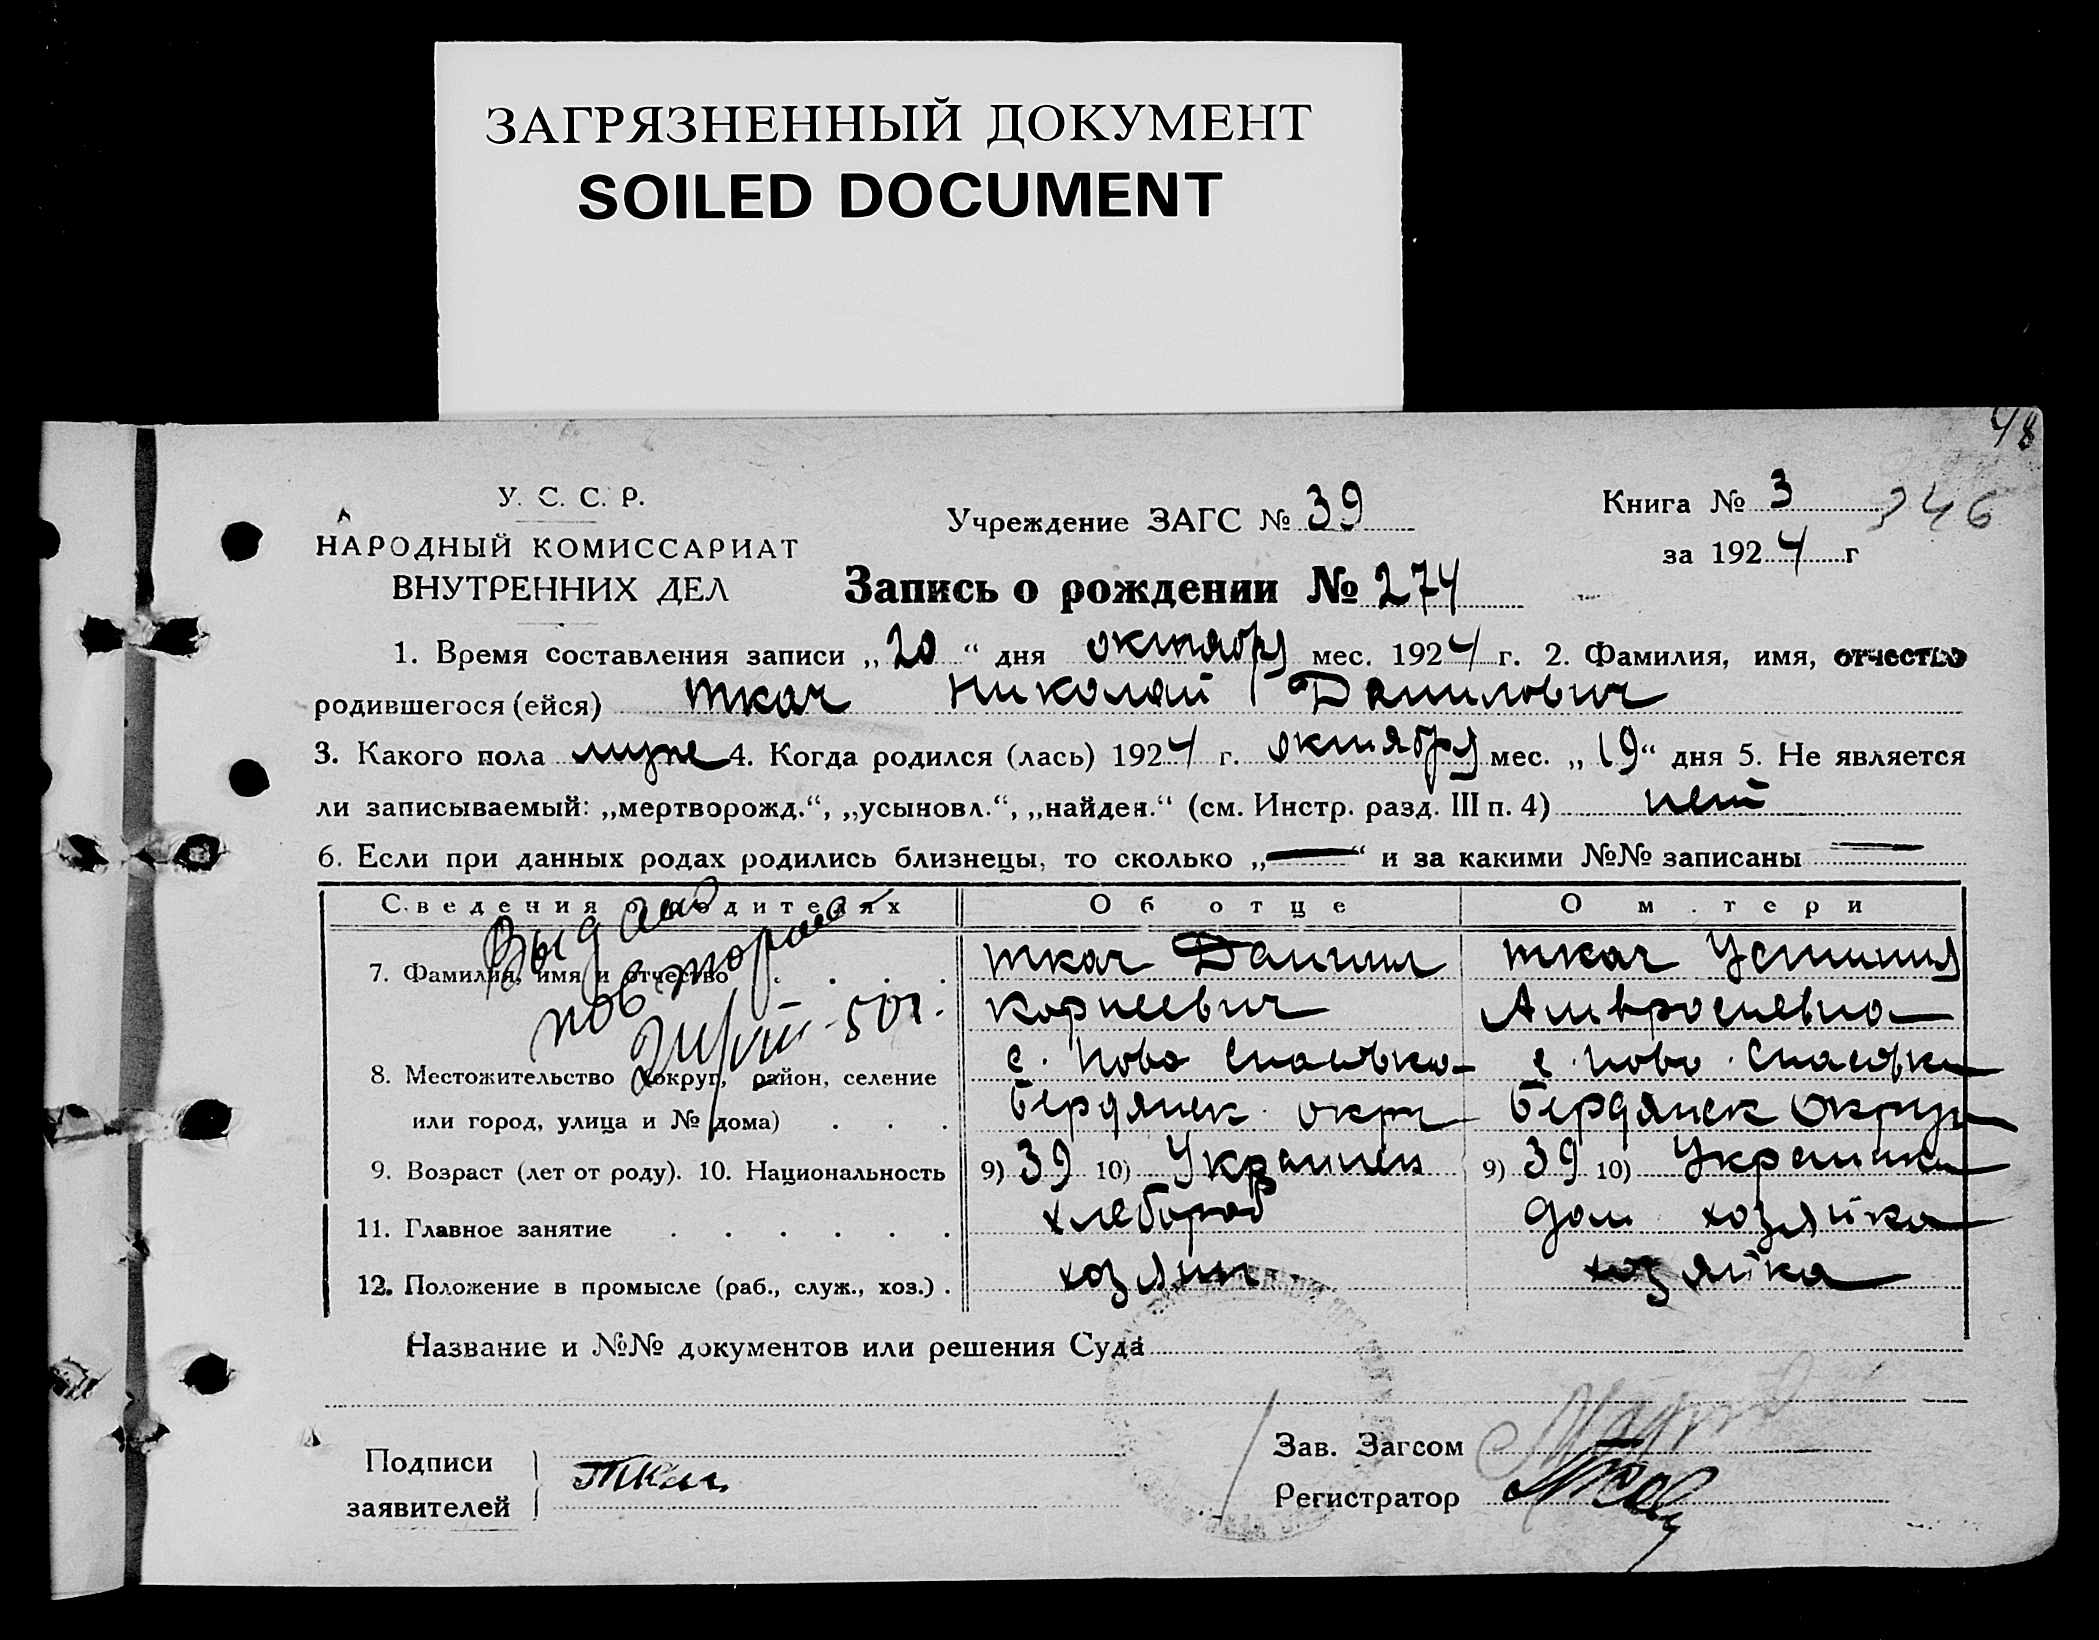 ЗАГРЯЗНЕННЫЙ ДОКУМЕНТ
SOILED DOCUMENT
48
У. С. С. Р.
НАРОДНЫЙ КОМИССАРИАТ
ВНУТРЕННИХ ДЕЛ
Учреждение ЗАГС № 39
Книга № 3
346
за 1924 г
Запись о рождении № 274
1. Время составления записи „20“ дня октября мес. 1924 г. 2. Фамилия, имя, отчество
родившегося (ейся) Ткач Николай Данилович
3. Какого пола муж 4. Когда родился (лась) 1924 г. октября мес. „19“ дня 5. Не является
ли записываемый: „мертворожд.“, „усыновл.“, „найден.“ (см. Инстр. разд. III п. 4) нет
6. Если при данных родах родились близнецы, то сколько „—“ и за какими №№ записаны —
Сведения о родителях Об отце О м.тери
Выдано
повторное
50 г.
7. Фамилия, имя и отчество . . . . Ткач Даниил Ткач Устиния
Корнеевич Амвросиевна
8. Местожительство (округ, район, селение с. Ново Спасовка с. Ново Спасовка
или город, улица и № дома) . . . Бердянск окр Бердянск округ
9. Возраст (лет от роду). 10. Национальность 9) 39 10) Украинец 9) 39 10) Украинка
11. Главное занятие . . . . . . хлебороб дом хозяйка
12. Положение в промысле (раб., служ., хоз.) . хозяин хозяйка
Название и №№ документов или решения Суда
Подписи
заявителей
Ткач
Зав. Загсом
Регистратор